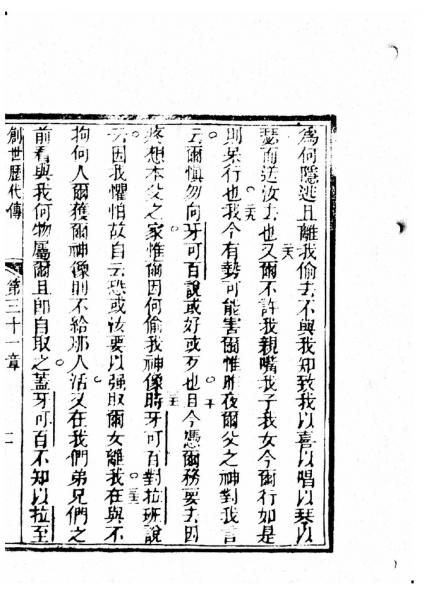 為何隱逃且離我偷去不與我知致我以喜以唱以琴以
瑟而送汝去也又爾不許我親嘴我子我女今爾行如是
則呆行也我今有勢可能害爾惟昨夜爾父之神對我言
云爾慎勿向牙可百說或好或歹也且今憑爾務要去因
疼想本父之家惟爾因何偷我神像時牙可百對拉班說
云因我懼怕故自云恐或該要以强取爾女離我在與不
拘何人爾獲爾神像則不給那人活又在我們弟兄們之
前看與我何物屬爾且即自取之蓋牙可百不知以拉至
創世歷代傳
第三十一章
二